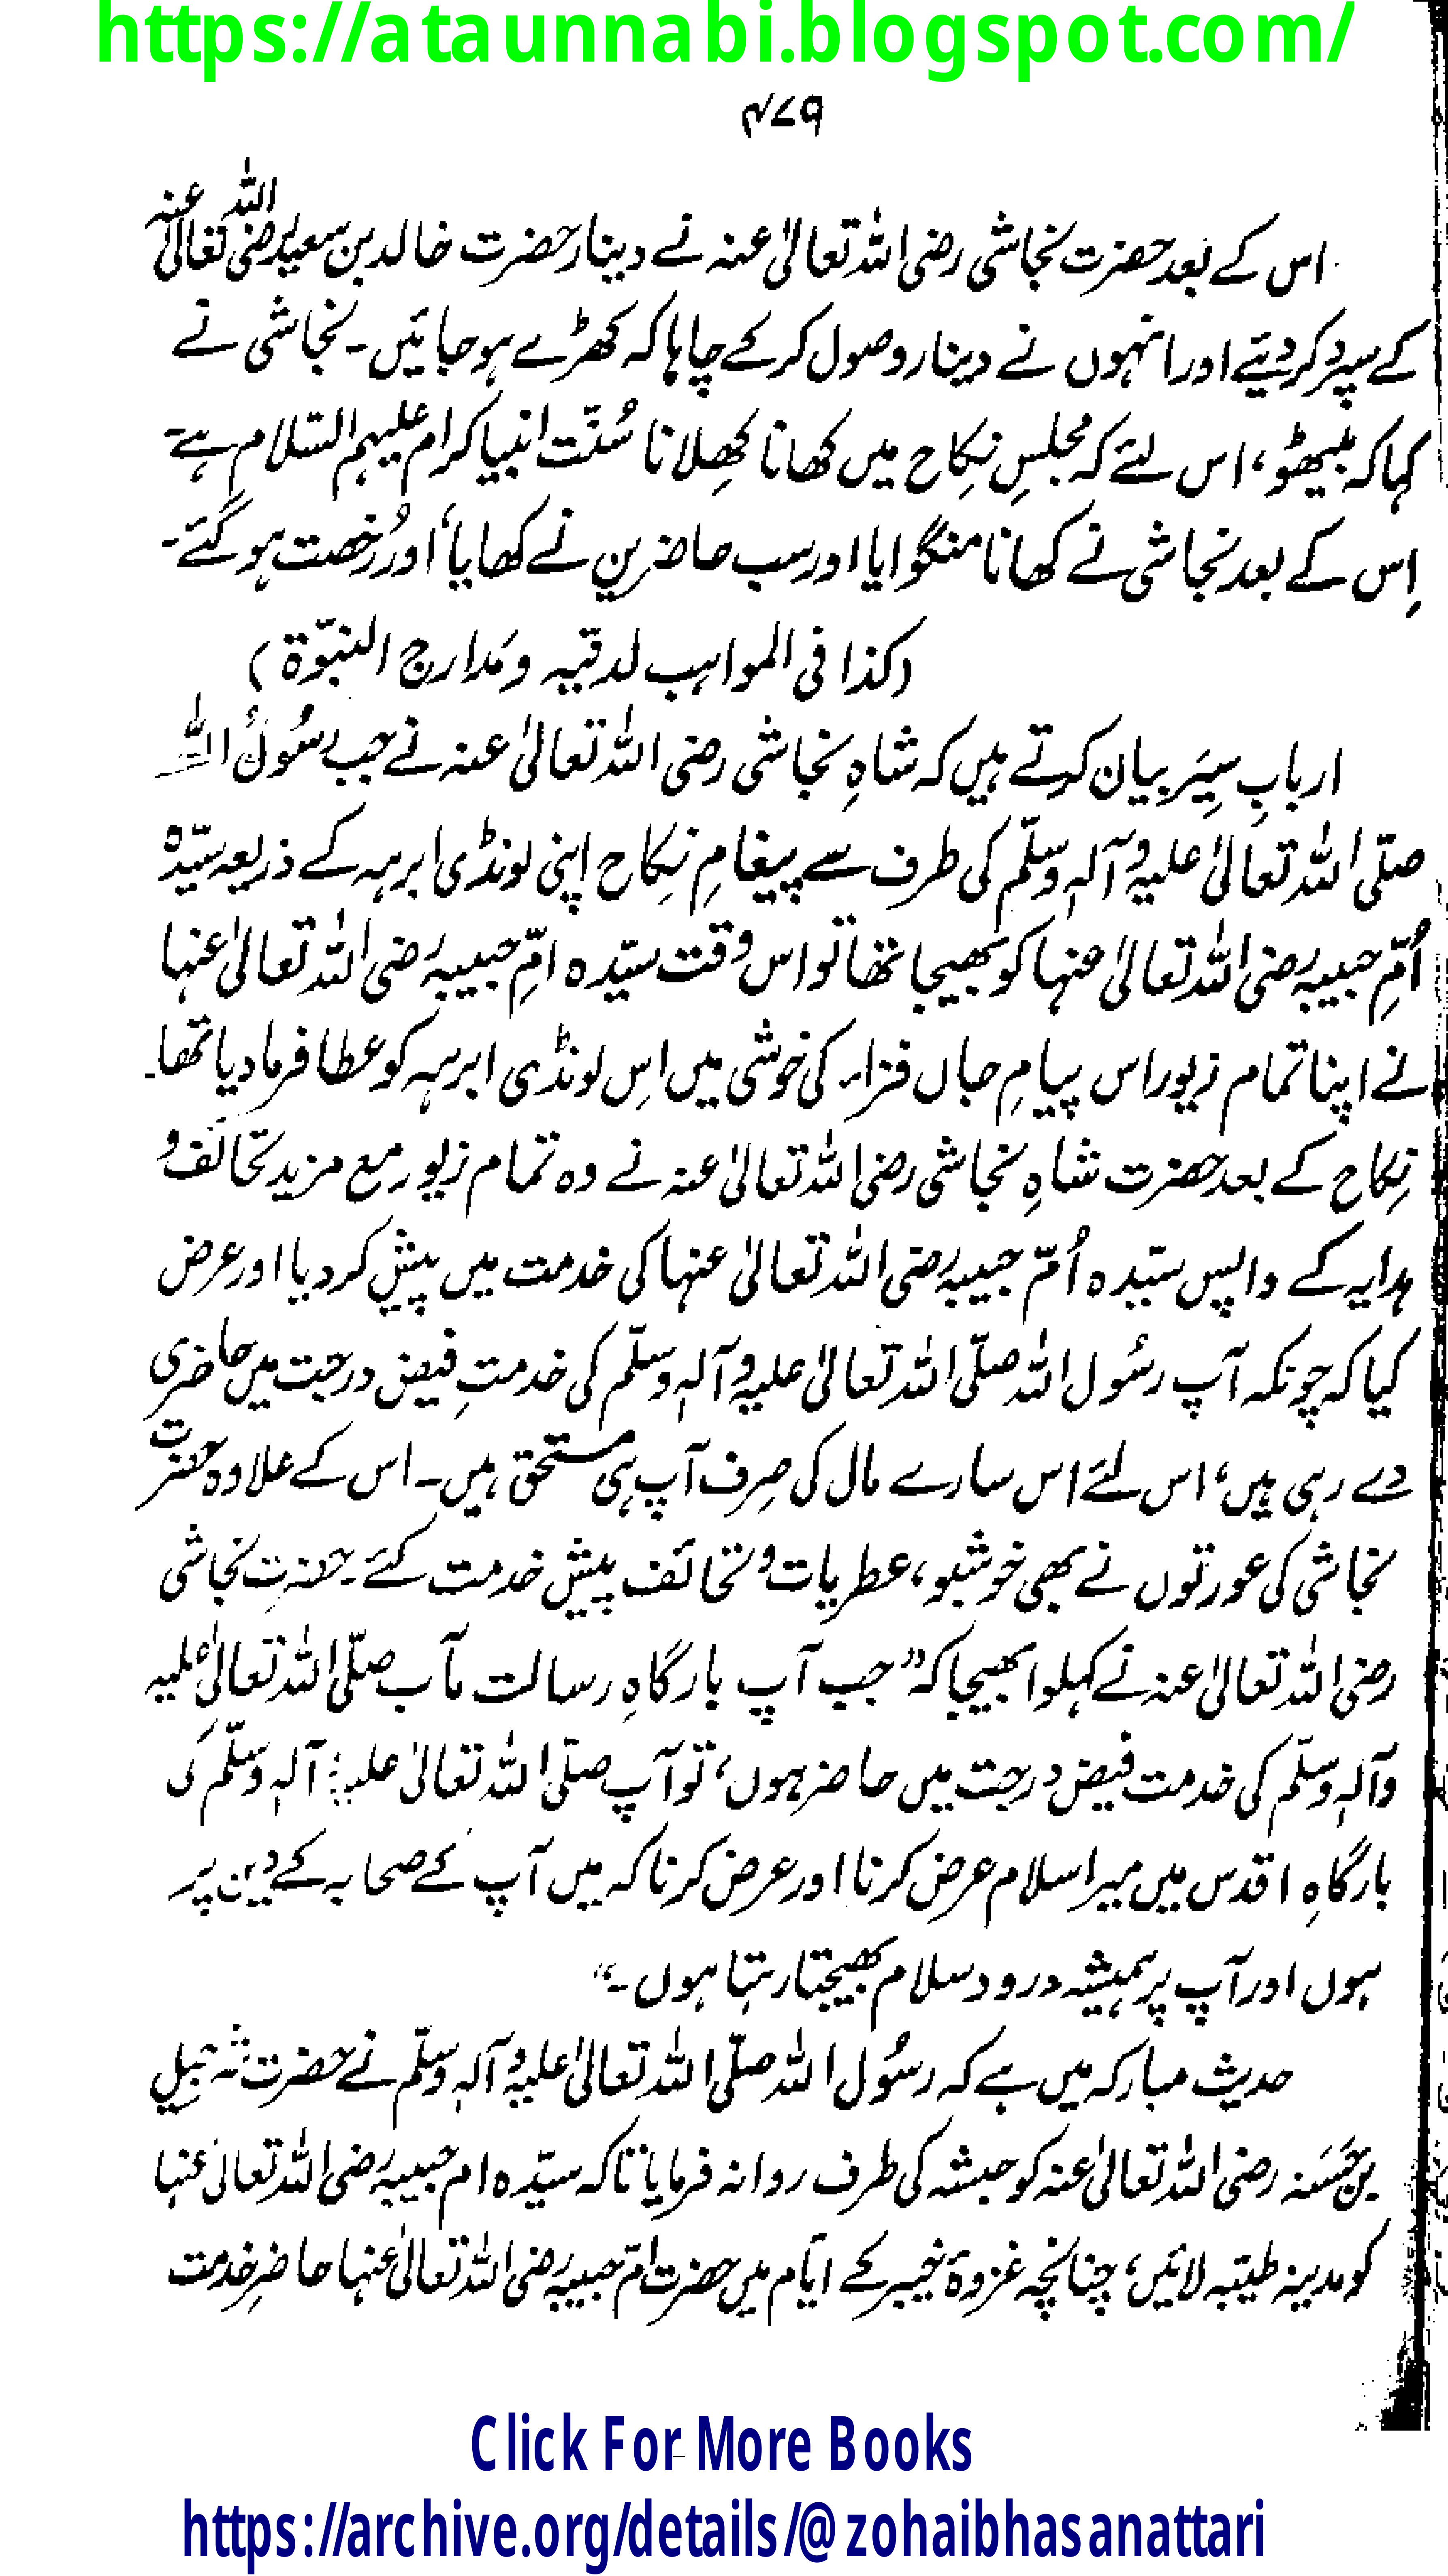 https://ataunnabi.blogspot.com/
۴۷۹
اس کے بعد حضرت نجاشی رضی اللہ تعالیٰ عنہ نے دینار حضرت خالد بن سعید رضی اللہ تعالیٰ عنہ
کے سپرد کر دیئے اور انہوں نے دینار وصول کر کے چاہا کہ کھڑے ہو جائیں۔ نجاشی نے
کہا کہ بیٹھو، اس لئے کہ مجلسِ نِکاح میں کھانا کھِلانا سُنّت انبیا کرام علیہم السّلام ہے۔
اِس کے بعد نجاشی نے کھانا منگوایا اور سب حاضرین نے کھایا، اور رُخصت ہو گئے۔
(کذا فی المواہب لدنیہ و مَدارج النبوّۃ)
اربابِ سِیَر بیان کرتے ہیں کہ شاہِ نجاشی رضی اللہ تعالیٰ عنہ نے جب رسُولُ اللہ
صلّی اللہ تعالیٰ علیہ وآلہٖ وسلّم کی طرف سے پیغامِ نِکاح اپنی لونڈی ابرہہ کے ذریعہ سیّدہ
اُمِّ حبیبہ رضی اللہ تعالیٰ عنہا کو بھیجا تھا تو اس وقت سیّدہ امِّ حبیبہ رضی اللہ تعالیٰ عنہا
نے اپنا تمام زیور اس پیامِ جاں فزاء کی خوشی میں اِس لونڈی ابرہہ کو عطا فرما دیا تھا۔
نِکاح کے بعد حضرت شاہِ نجاشی رضی اللہ تعالیٰ عنہ نے وہ تمام زیور مع مزید تحائف و
ہدایہ کے واپس سیّدہ اُمّ حبیبہ رضی اللہ تعالیٰ عنہا کی خدمت میں پیش کر دیا اور عرض
کیا کہ چونکہ آپ رسُول اللہ صلّی اللہ تعالیٰ علیہ وآلہٖ وسلّم کی خدمتِ فیض درجت میں حاضری
دے رہی ہیں، اس لئے اس سارے مال کی صِرف آپ ہی مستحق ہیں۔ اس کے علاوہ حضرت
نجاشی کی عورتوں نے بھی خوشبو، عطریات و تحائف پیش خدمت کئے۔ حضرت نجاشی
رضی اللہ تعالیٰ عنہ نے کہلوا بھیجا کہ ”جب آپ بارگاہِ رسالت مآب صلّی اللہ تعالیٰ علیہ
وآلہٖ وسلّم کی خدمت فیض درجت میں حاضر ہوں، تو آپ صلّی اللہ تعالیٰ علیہ وآلہٖ وسلّم کی
بارگاہِ اقدس میں میرا سلام عرض کرنا اور عرض کرنا کہ میں آپ کے صحابہ کے دین پر
ہوں اور آپ پر ہمیشہ درود سلام بھیجتا رہتا ہوں۔“
حدیث مبارکہ میں ہے کہ رسُول اللہ صلّی اللہ تعالیٰ علیہ وآلہٖ وسلّم نے حضرت شرجیل
بن حَسَنہ رضی اللہ تعالیٰ عنہ کو حبشہ کی طرف روانہ فرمایا تاکہ سیّدہ ام حبیبہ رضی اللہ تعالیٰ عنہا
کو مدینہ طیّبہ لائیں، چنانچہ غزوۂ خیبر کے ایّام میں حضرت امّ حبیبہ رضی اللہ تعالیٰ عنہا حاضرِ خدمت
Click For More Books
https://archive.org/details/@zohaibhasanattari